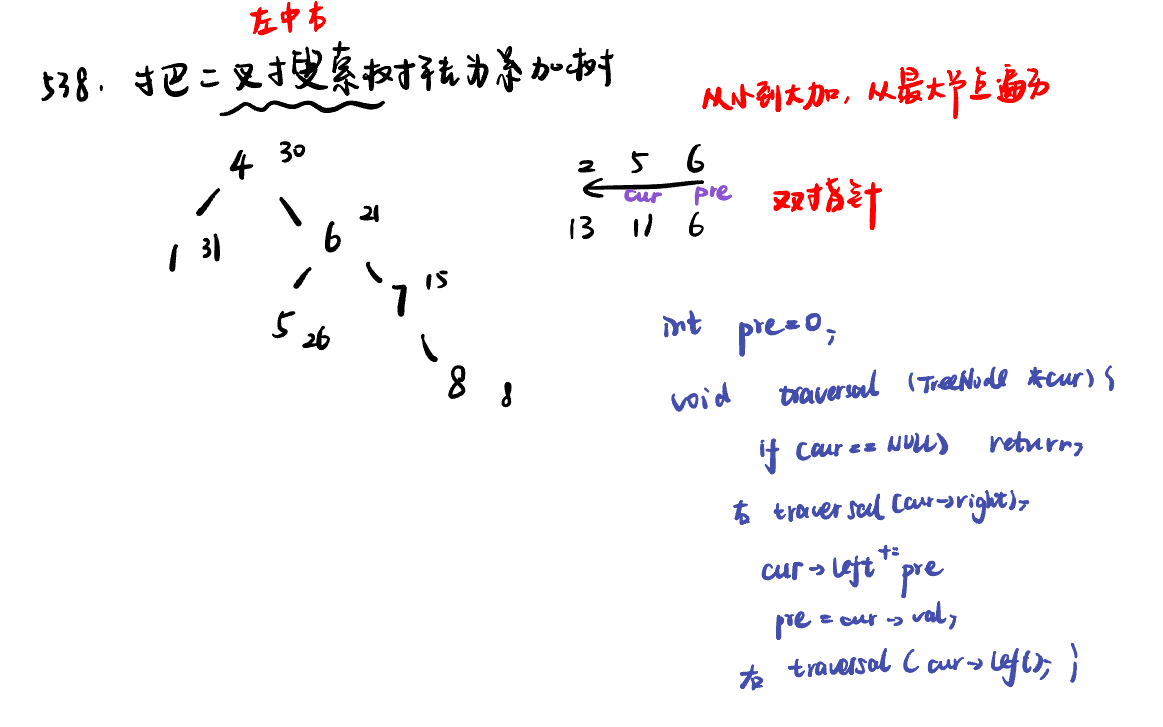 左中右
538. 把二叉搜索树转为累加树
从小到大加，从最大节点遍历
4 30
2 5 6
cur pre
双指针
13 11 6
1 31
6 21
7 15
5 26
8 8
int pre=0;
void traversal (TreeNode *cur) {
if (cur == NULL) return;
右 traversal (cur->right);
cur->left += pre
pre = cur->val;
右 traversal (cur->left); }